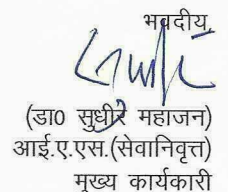 भवदीय,
(डा0 सुधीर महाजन)
आई.ए.एस.(सेवानिवृत्त)
मुख्य कार्यकारी